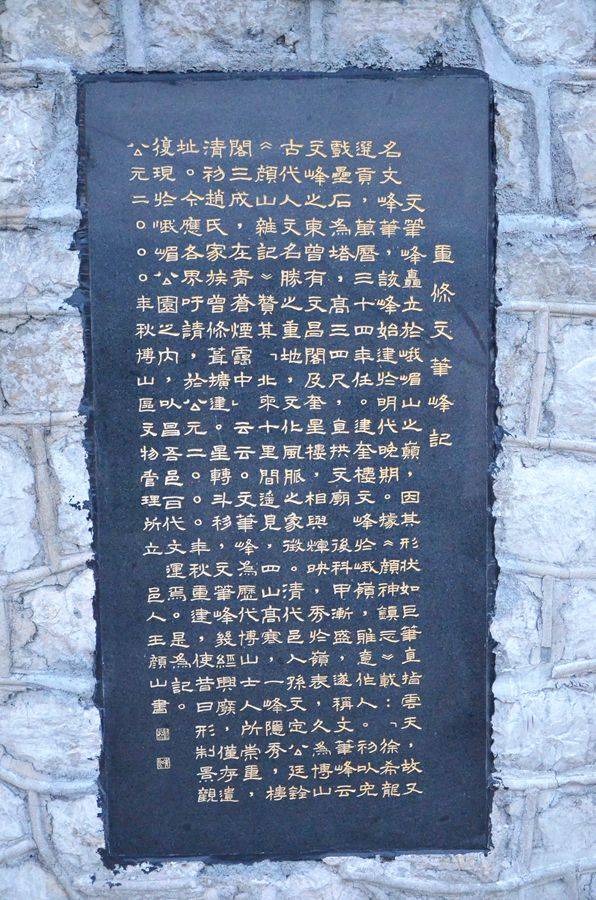 重修文筆峰記
文筆峰矗立於峨嵋山之巔，因其形狀如巨筆直指雲天，故又
名文峰筆，該峰始建於明代晚期，據《顏神鎮志》載：「徐希龍
選貢，萬曆三十四年任。建奎樓文峰於峨嶺，雖意作人。初以完
戟壘石為塔，高三四尺，直拱文廟後科甲漸盛，遂稱文筆峰云
文峰之東曾有文昌閣及奎星樓，相與輝映，秀於嶺表，久為博山
古代人文名勝之重地，文化風脈之象徵。清代邑人孫文定公廷銓
《顏山雜記》贊其「北來十里間遙見四山高寒，一峰隱秀，樓
閣三成在青蒼煙靄中」云云。文筆峰，為歷代博山士人所崇重，
清初趙氏家族曾修葺擴建。星轉斗移，文筆峰幾經興廢，僅存遺
址。今應各界吁請，於公元二〇〇〇年秋重建，使昔日形制景觀
復現於峨嵋公園之內，以昌吾邑百代文運焉。是為記。
公元二〇〇〇年秋博山區文物管理所立 邑人王顏山書